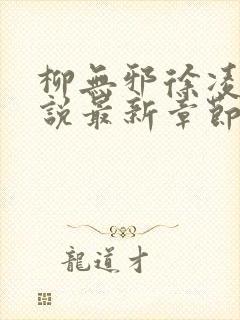 柳無邪徐凌
說最新章節
龍道才